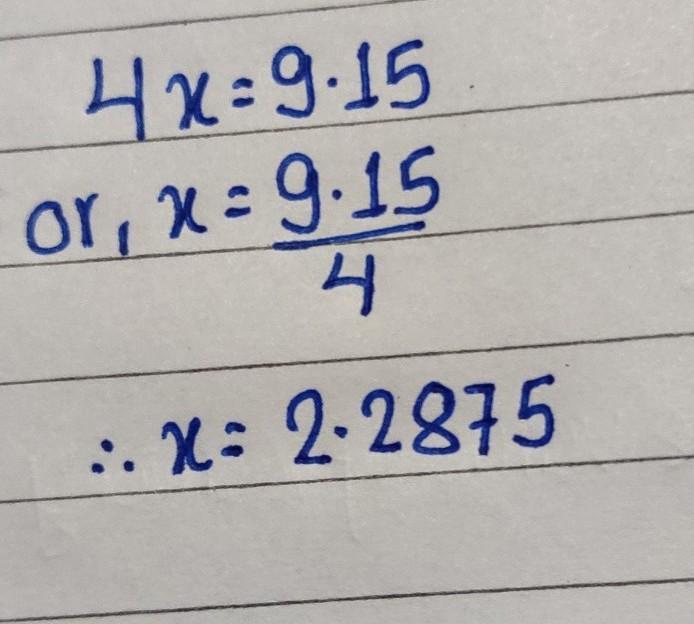 4x = 9·15
or, x = 9·15/4
∴ x = 2·2875